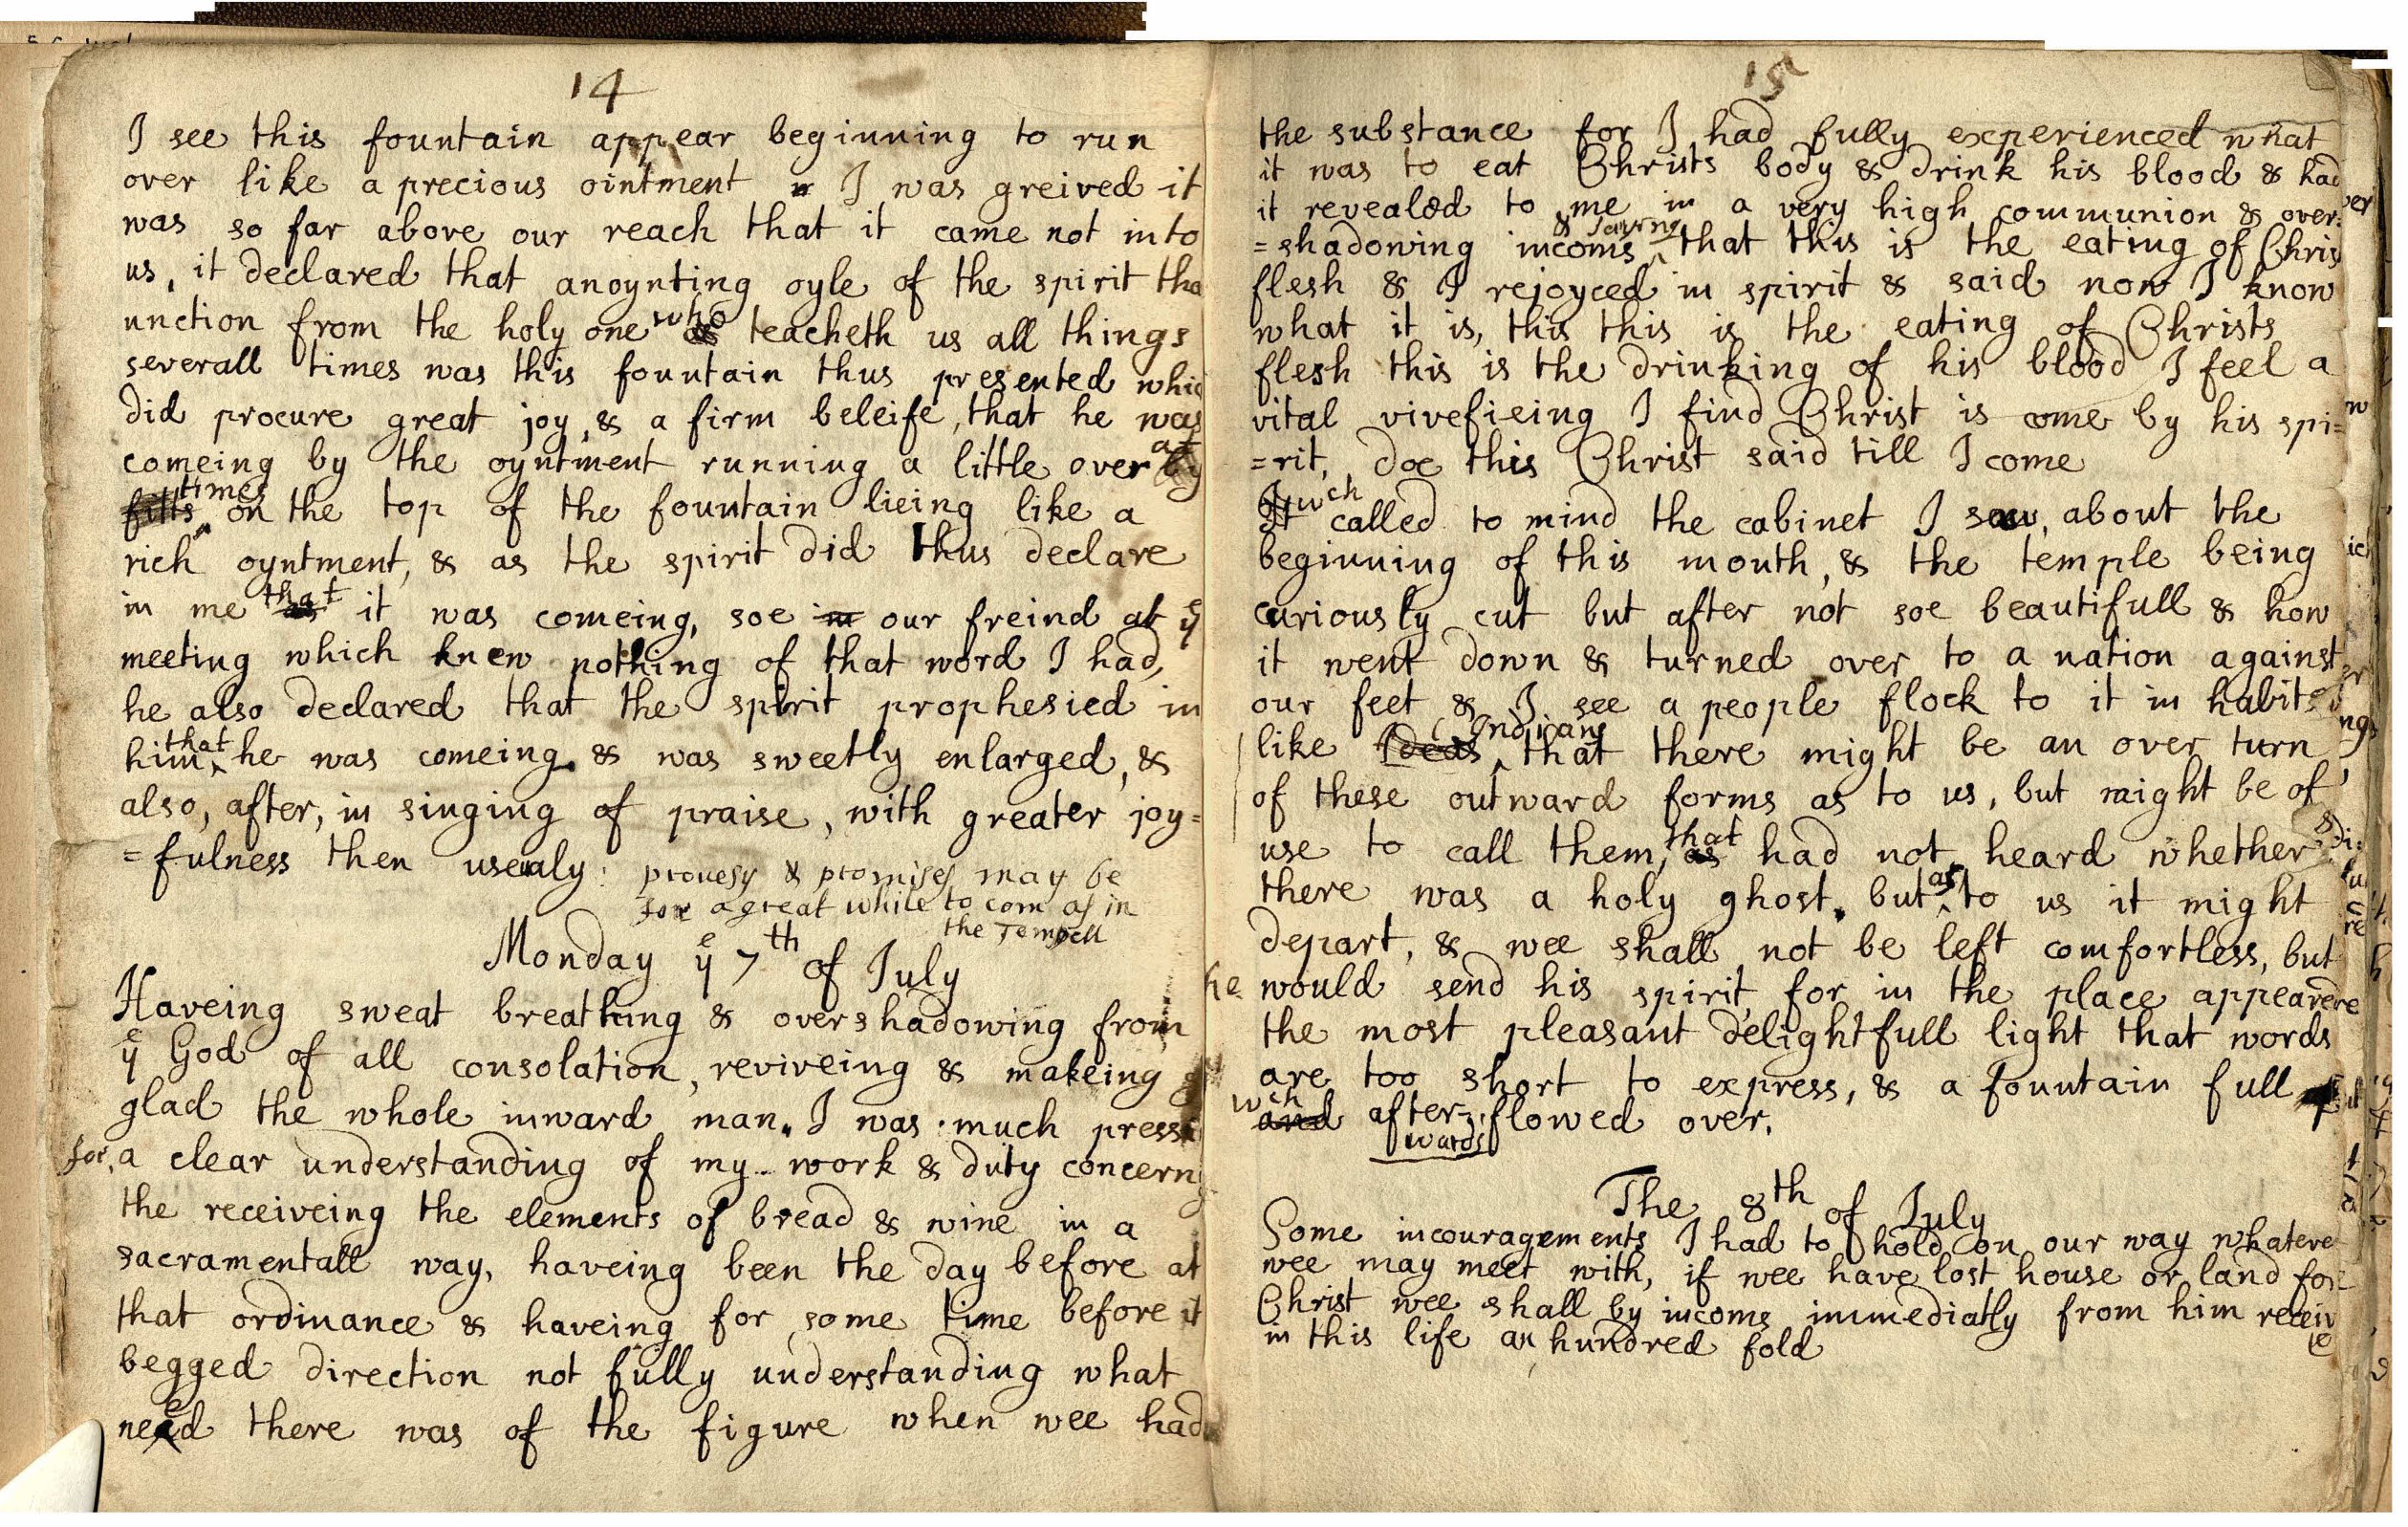 14
I see this fountain appear beginning to run
over like a precious ointment I was greived it
was so far above our reach that it came not into
us, it declared that anoynting oyle of the spirit the
unction from the holy one who teacheth us all things
severall times was this fountain thus presented whic
did procure great joy, & a firm beleife, that he was
comeing by the oyntment running a little over at
times on the top of the fountain lieing like a
rich oyntment, & as the spirit did thus declare
in me that it was comeing, soe in our freind at yᵉ
meeting which knew nothing of that word I had,
he also declared that the spirit prophesied in
him that he was comeing & was sweetly enlarged, &
also, after, in singing of praise, with greater joy=
=fulness then usealy: provesy & promises may be
for a great while to com as in
the Tempell
Monday yᵉ 7th of July
Haveing sweat breathing & overshadowing from
yᵉ God of all consolation, reviveing & makeing
glad the whole inward man. I was much press
for a clear understanding of my work & duty concern
the receiveing the elements of bread & wine in a
sacramentall way, haveing been the day before at
that ordinance & haveing for some time before it
begged direction not fully understanding what
need there was of the figure when wee had
15
the substance for I had fully experienced what
it was to eat Christs body & drink his blood & had
it revealed to me in a very high communion & over=
=shadowing incoms & saying that this is the eating of Chris
flesh & I rejoyced in spirit & said now I know
what it is, this this is the eating of Christs
flesh this is the drinking of his blood I feel a
vital vivefieing I find Christ is come by his spi=
=rit, doe this Christ said till I come
wch called to mind the cabinet I saw, about the
beginning of this mouth, & the temple being
curiously cut but after not soe beautifull & how
it went down & turned over to a nation against
our feet & I see a people flock to it in habits
like Indians that there might be an over turn
of these outward forms as to us, but might be of
use to call them, that had not heard whether
there was a holy ghost, but as to us it might
depart, & wee shall not be left comfortless, but
he would send his spirit, for in the place appeared
the most pleasant delightfull light that words
are too short to express, & a fountain full
wch afterwards flowed over.
The 8th of July
Some incouragements I had to hold on our way whatere
wee may meet with, if wee have lost house or land for
Christ wee shall by incoms immediatly from him receive
in this life an hundred fold